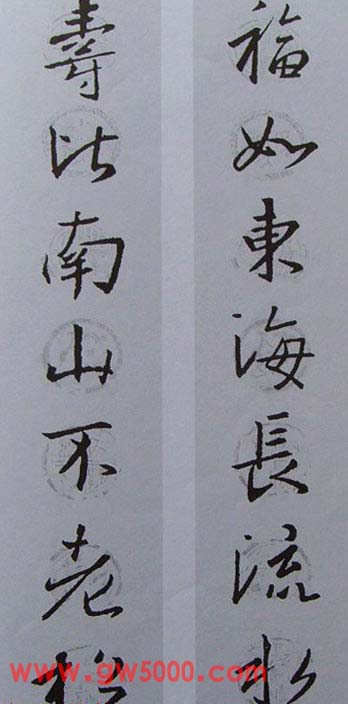 福如東海長流水
壽比南山不老松
www.gw5000.com